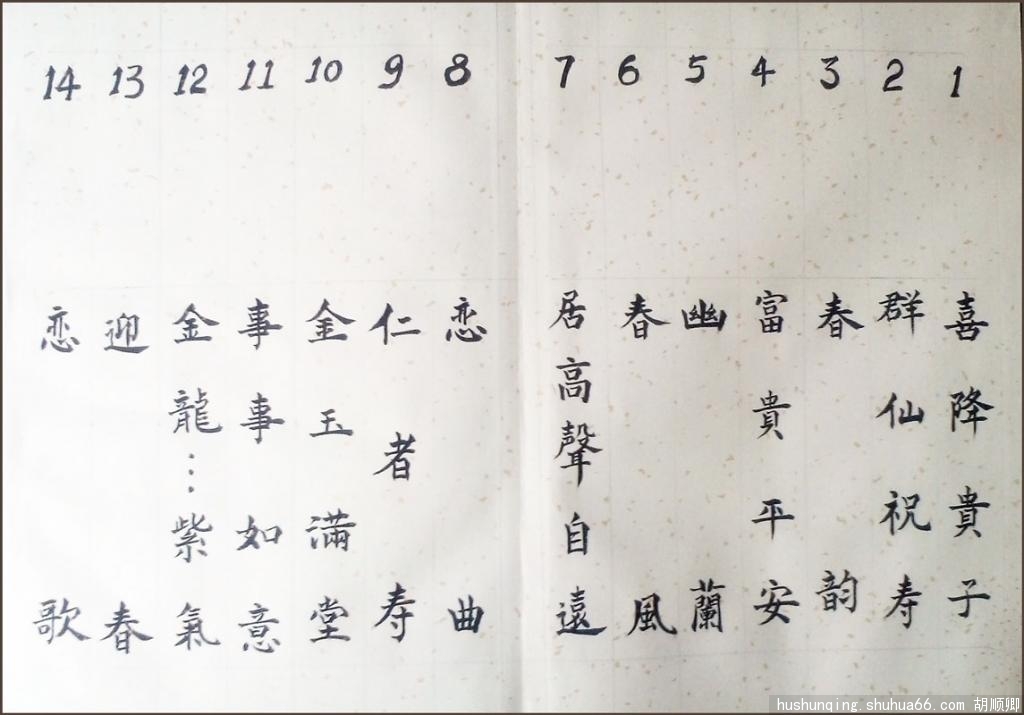 1 喜降貴子
2 群仙祝寿
3 春韵
4 富貴平安
5 幽蘭
6 春風
7 居高聲自遠
8 恋曲
9 仁者寿
10 金玉滿堂
11 事事如意
12 金龍…紫氣
13 迎春
14 恋歌
hushunqing.shuhua66.com 胡顺卿